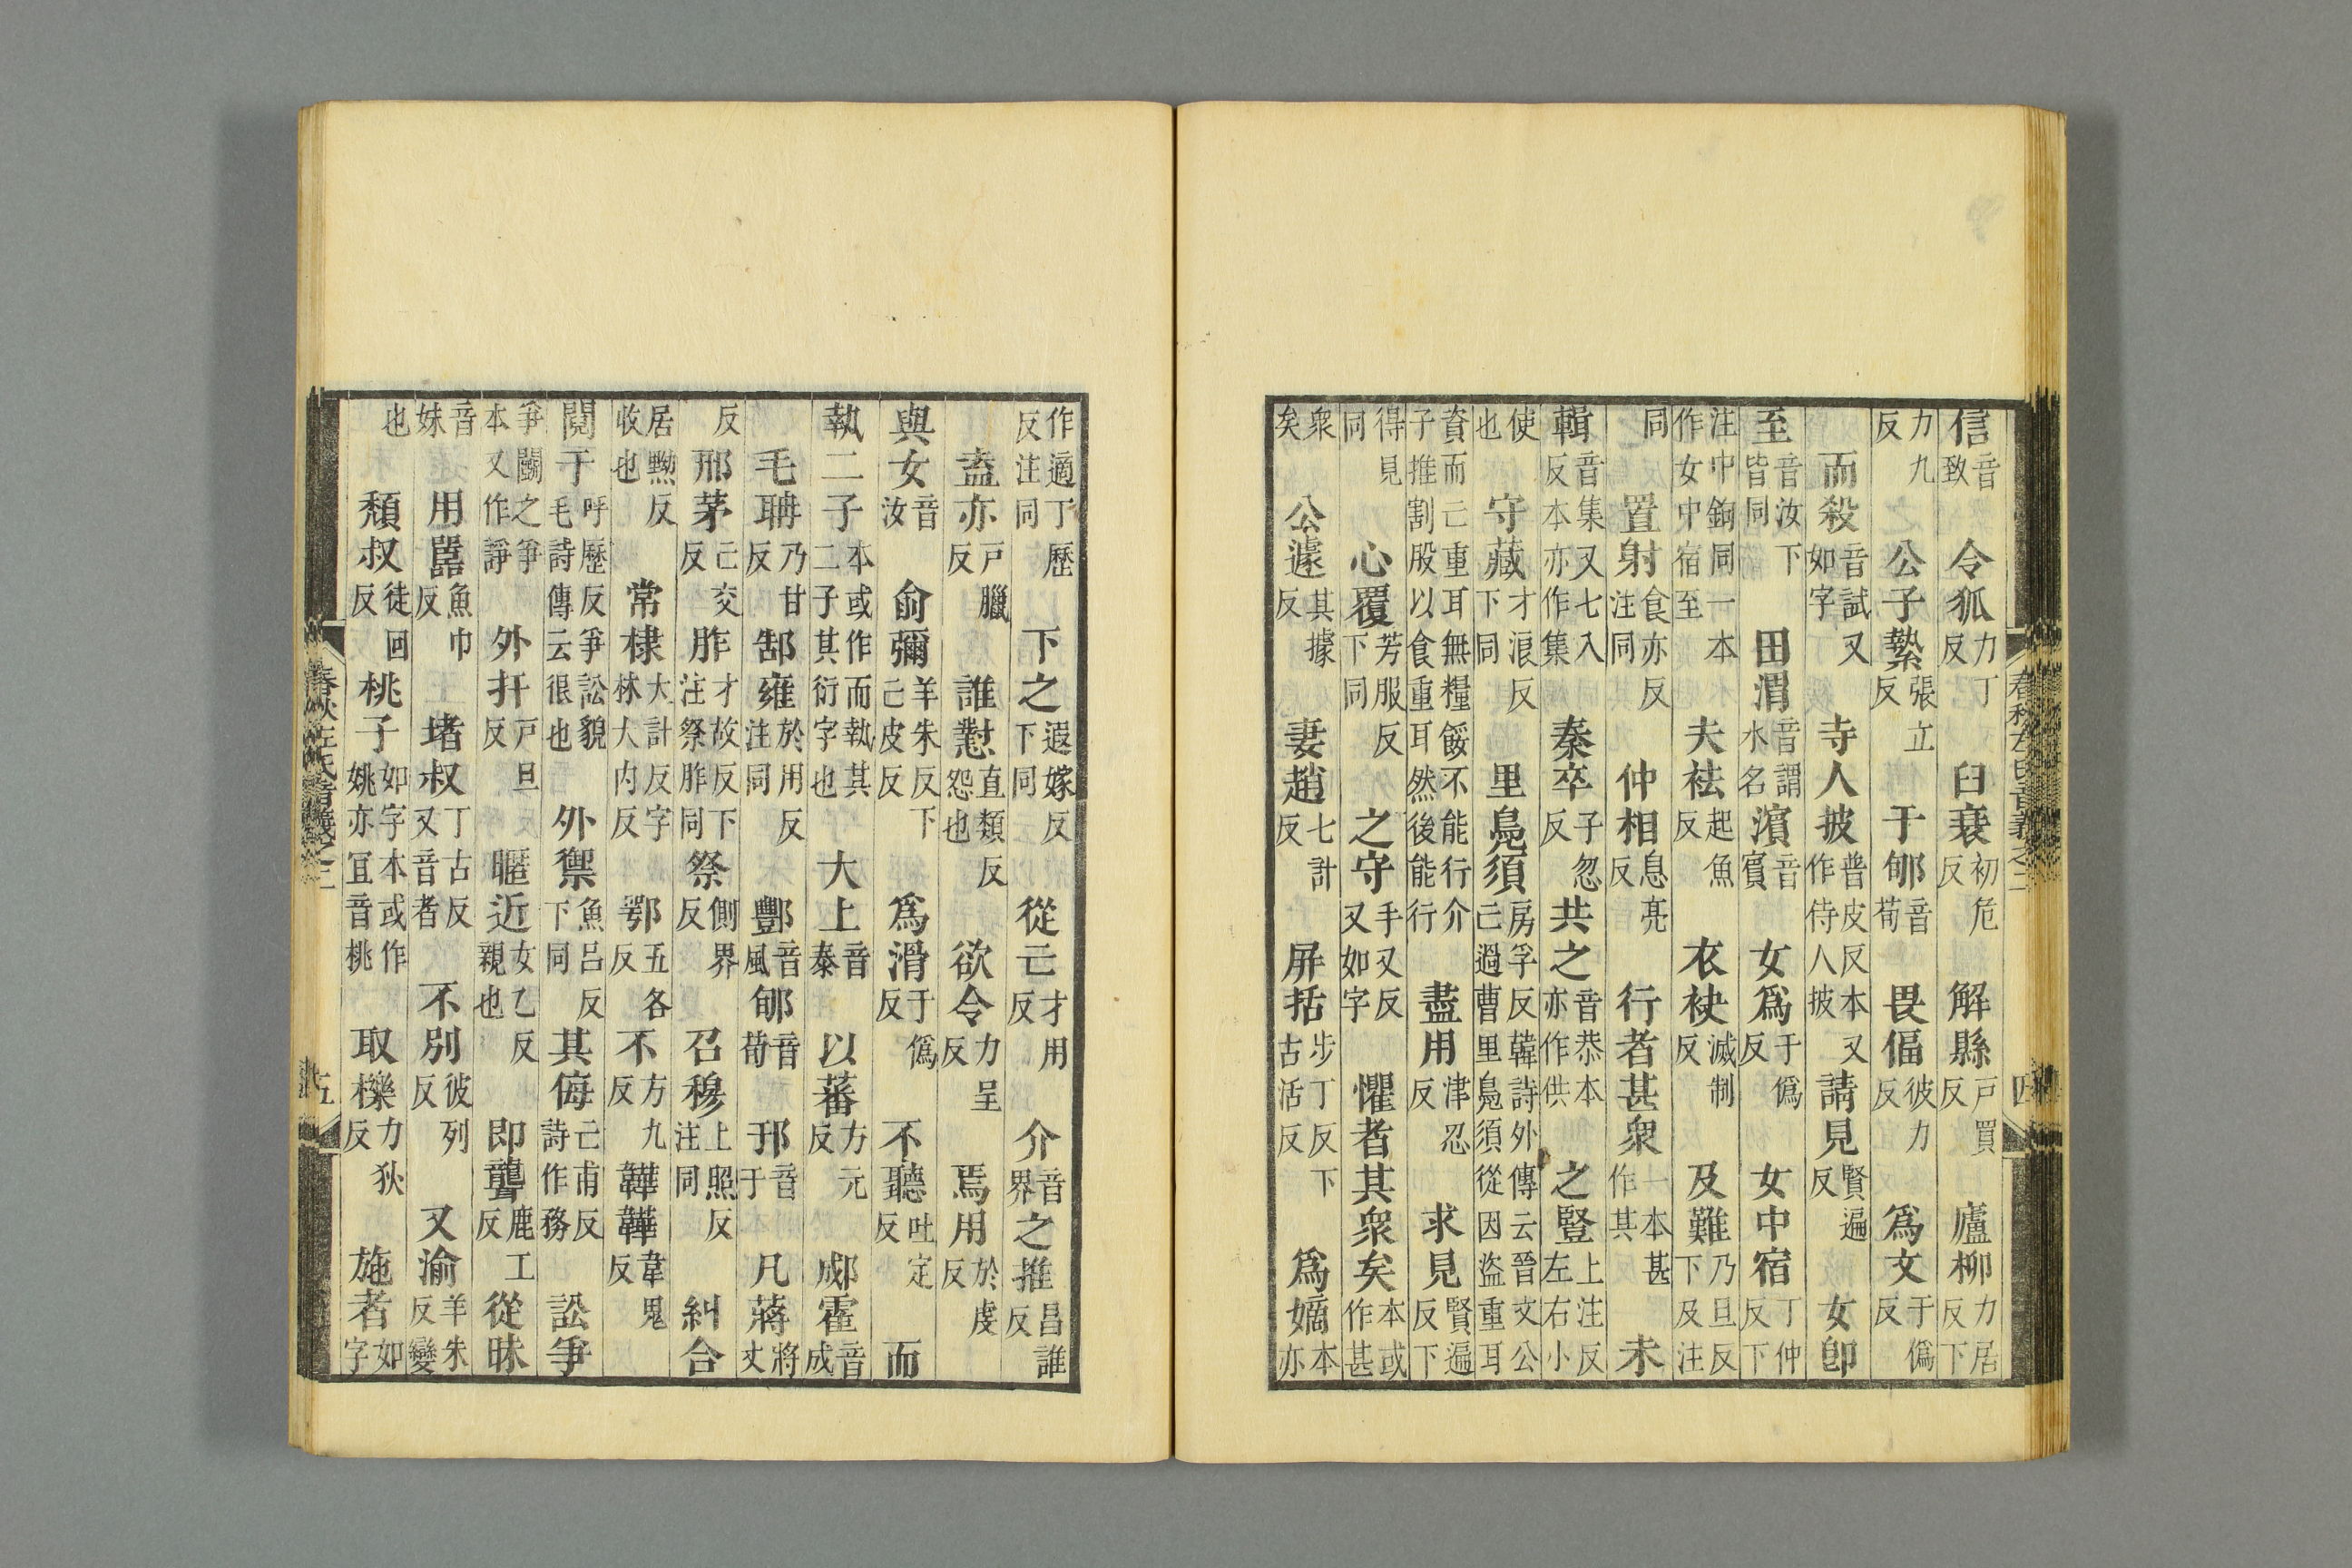 信音致　令狐力丁反　臼衰初危反　解縣戶買反　廬柳力居反下
力九反　公子縶張立反　于郇音荀　畏偪彼力反　爲文于僞反
而殺音試又如字　寺人披普皮反本又作侍人披　請見賢遍反　女卽
至音汝下皆同　田渭音謂水名　濱音賓　女爲于僞反　女中宿丁仲反下
注中鉤同一本作女中宿至　夫袪起魚反　衣袂滅制反　及難乃旦反下及注
同　置射食亦反注同　仲相息亮反　行者甚衆一本甚作其　未
輯音集又七入反本亦作集　秦卒子忽反　共之音恭本亦作供　之豎上注反左右小
使也　守藏才浪反下同　里鳧須房孚反韓詩外傳云晉文公亡過曹里鳧須從因盜重耳
資而亡重耳無糧餒不能行介子推割股以食重耳然後能行　盡用津忍反　求見賢遍反下
得見同　心覆芳服反下同　之守手又反又如字　懼者其衆矣本或作甚
衆矣　公遽其據反　妻趙七計反　屏括步丁反下古活反　爲嫡本亦
春秋左氏音義之二　四
作適丁歷反注同　下之遐嫁反下同　從亡才用反　介音界　之推昌誰反
盍亦戶臘反　誰懟直類反怨也　欲令力呈反　焉用於虔反
與女音汝　俞彌羊朱反下己皮反　爲滑于僞反　不聽吐定反　而
執二子本或作而執其二子其衍字也　大上音泰　以蕃方元反　郕霍音成
毛聃乃甘反　郜雍於用反注同　酆音風　郇音荀　邘音于　凡蔣將丈
反　邢茅己交反　胙才故反下注祭胙同　祭側界反　召穆上照反注同　糾合
居黝反收也　常棣大計反字林大內反　鄂五各反　不方九反　韡韡韋鬼反
鬩于呼歷反爭訟貌毛詩傳云很也　外禦魚呂反下同　其侮亡甫反詩作務　訟爭
爭鬭之爭本又作諍　外扞戶旦反　暱近女乙反親也　即聾鹿工反　從昧
音妹　用嚚魚巾反　堵叔丁古反又音者　不別彼列反　又渝羊朱反變
也　頹叔徒回反　桃子如字本或作姚亦宜音桃　取櫟力狄反　施者如字
春秋左氏音義之二　五